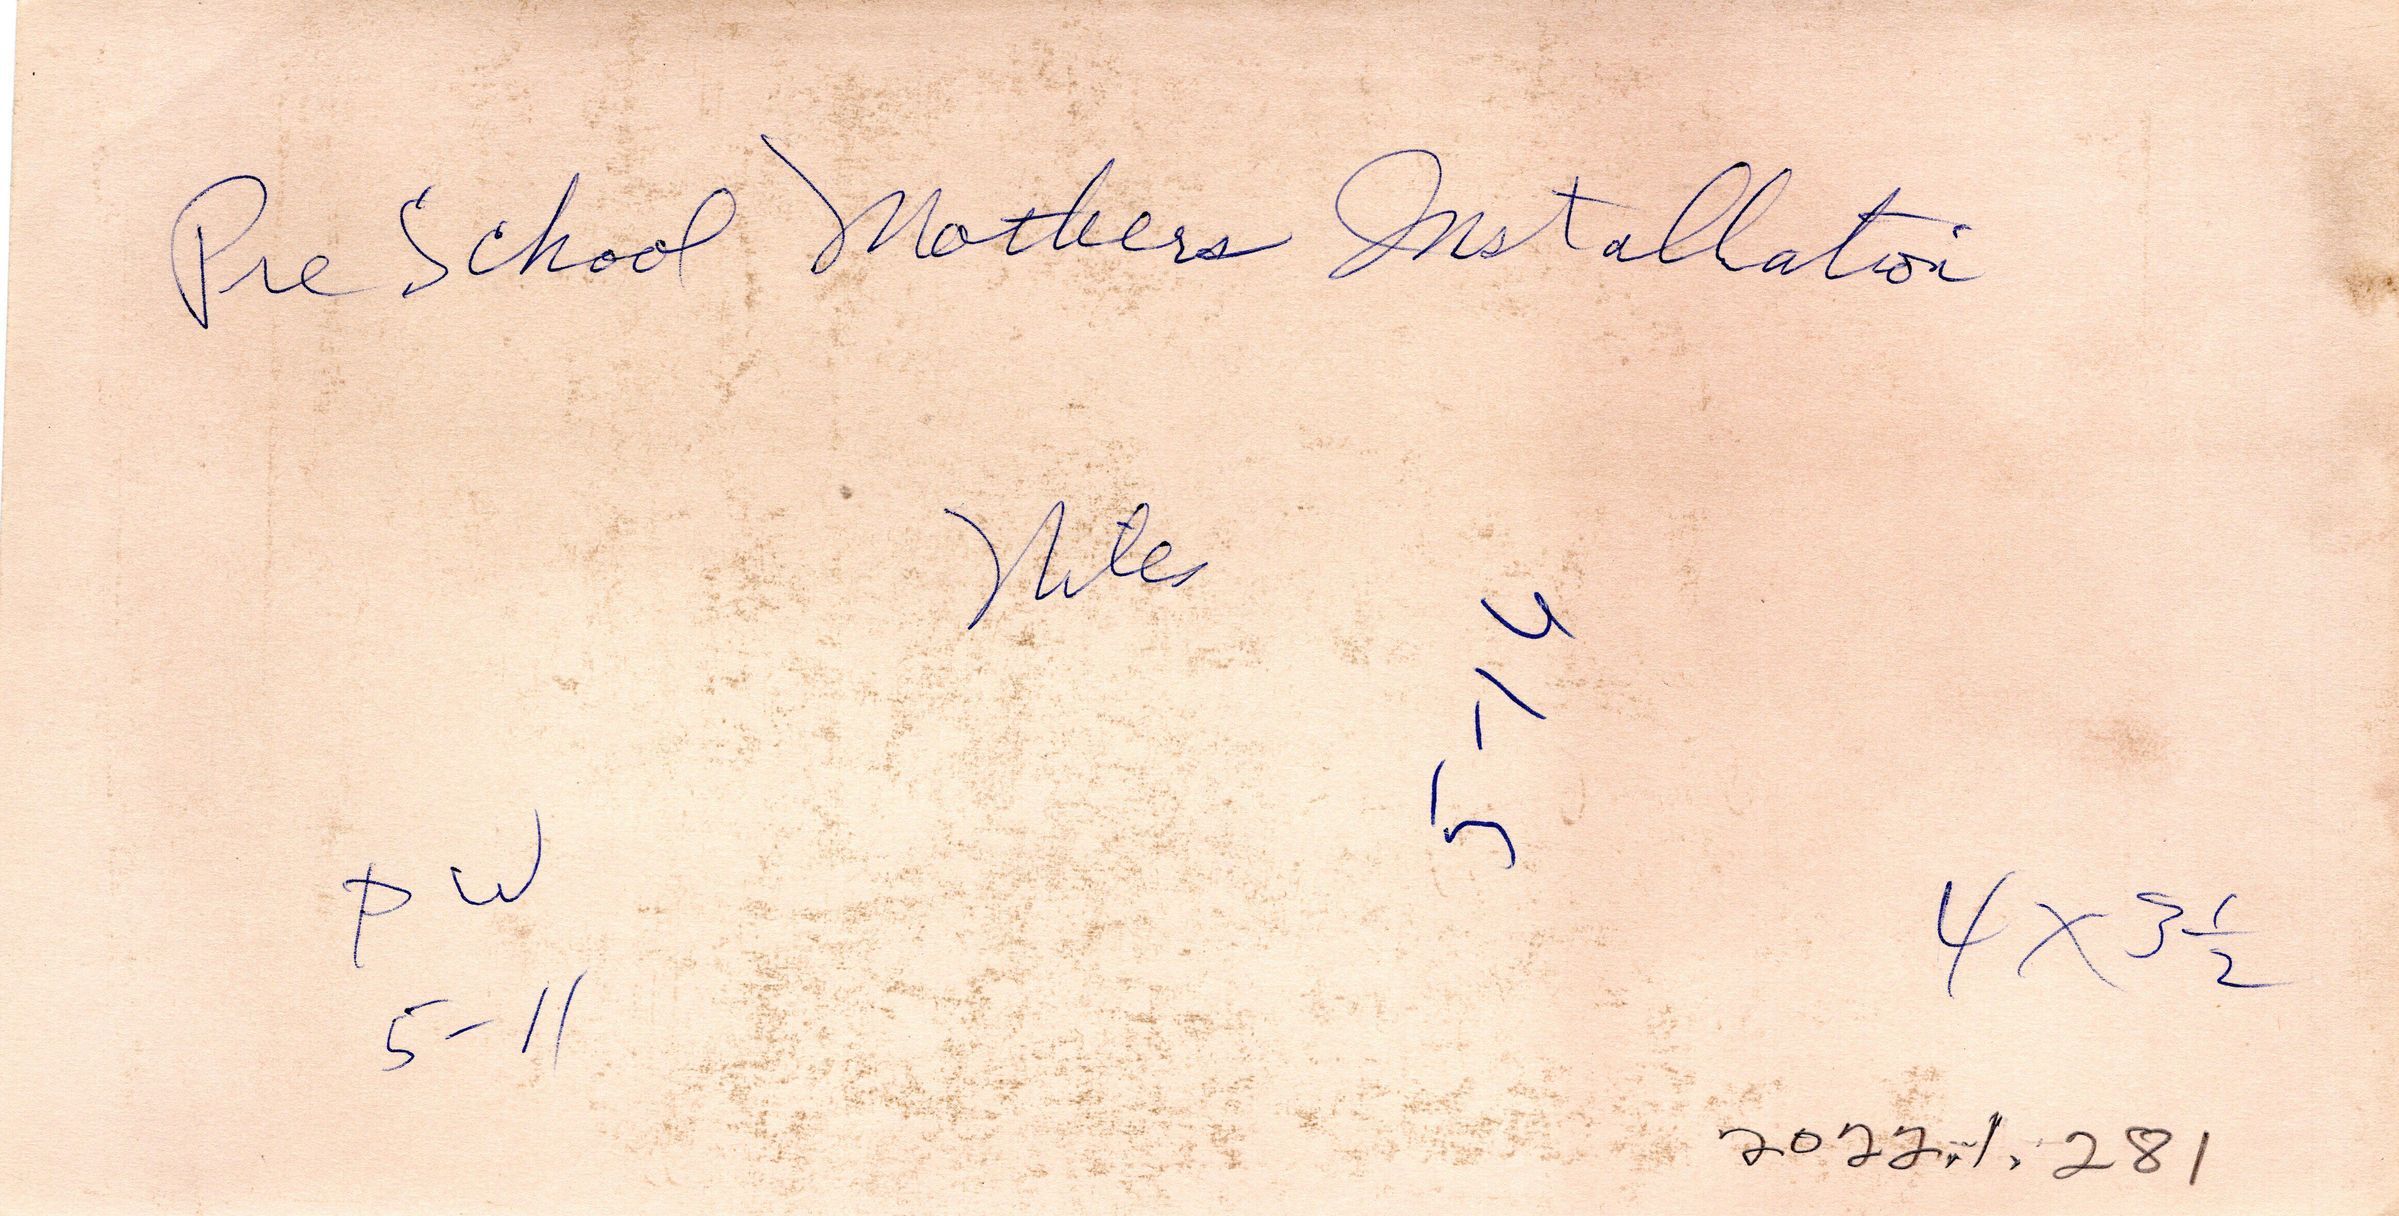 Pre School Mothers Installation
Niles
5-14
PW
5-11
4 x 3 1/2
2022.1.281